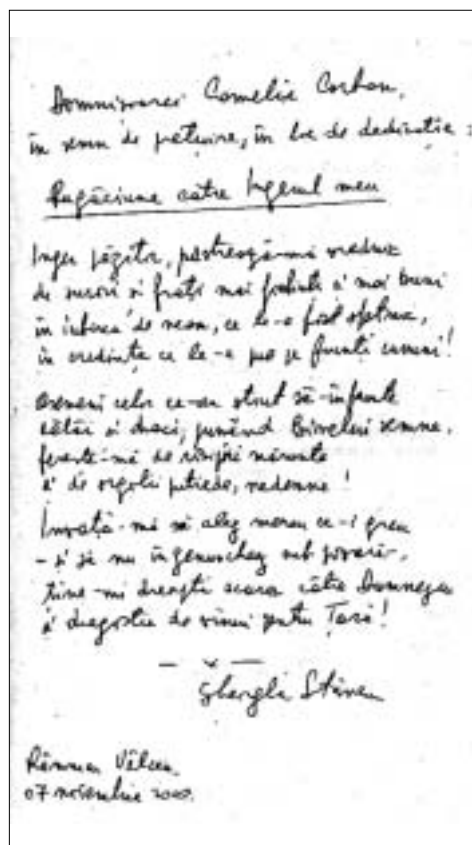 Domnișoarei Cornelia
în semn de prețuire, în loc de dedicație:
Rugăciune către Îngerul meu
Înger păzitor, păstrează-mă
de surori și frați mai și mai buni
în iubirea de neam, ce le-a fost
în credința ce le-a pus pe frunți cununi!
Asemeni celor ce-au știut să-nfrunte
călăi și draci, punând semne,
ferește-mă de
și de orgolii putrede, nedemne!
Învață-mă să aleg mereu ce-i greu
- și să nu îngenunchez sub poveri,
ține-mi dreaptă scara către Dumnezeu
și dragostea de pentru Țară!
Râmnicu Vâlcea,
07 noiembrie 2000.